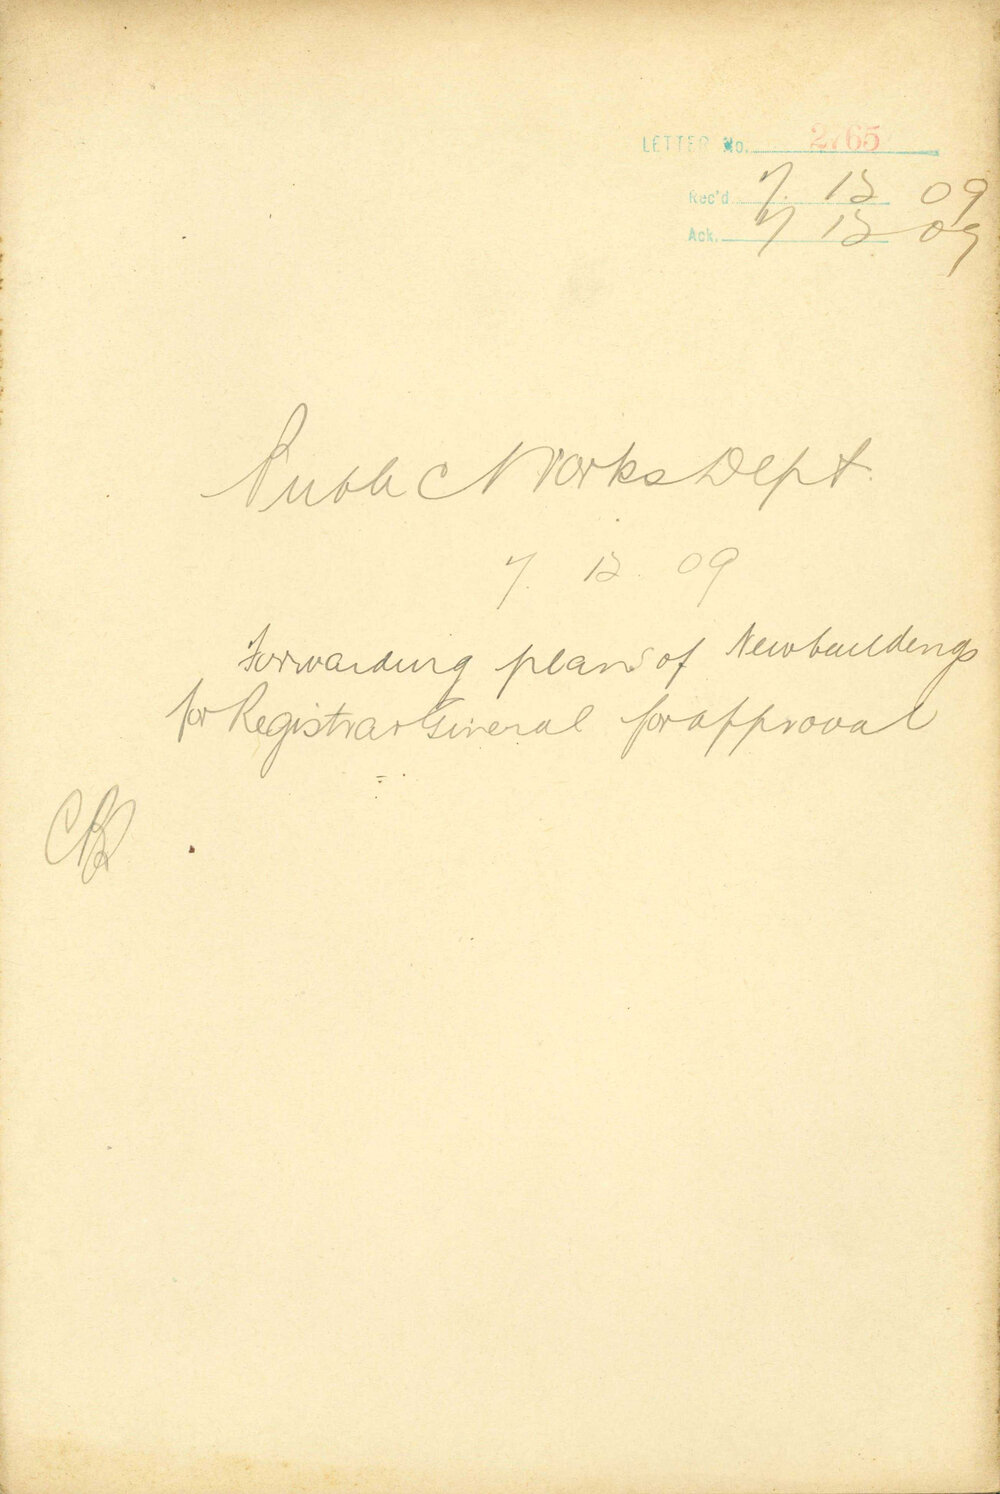 LETTER No. 2765
Rec'd 7. 12 09
Ack. 7 12 09
Public Works Dept.
7. 12. 09
Forwarding plans of New buildings
for Registrar General for approval